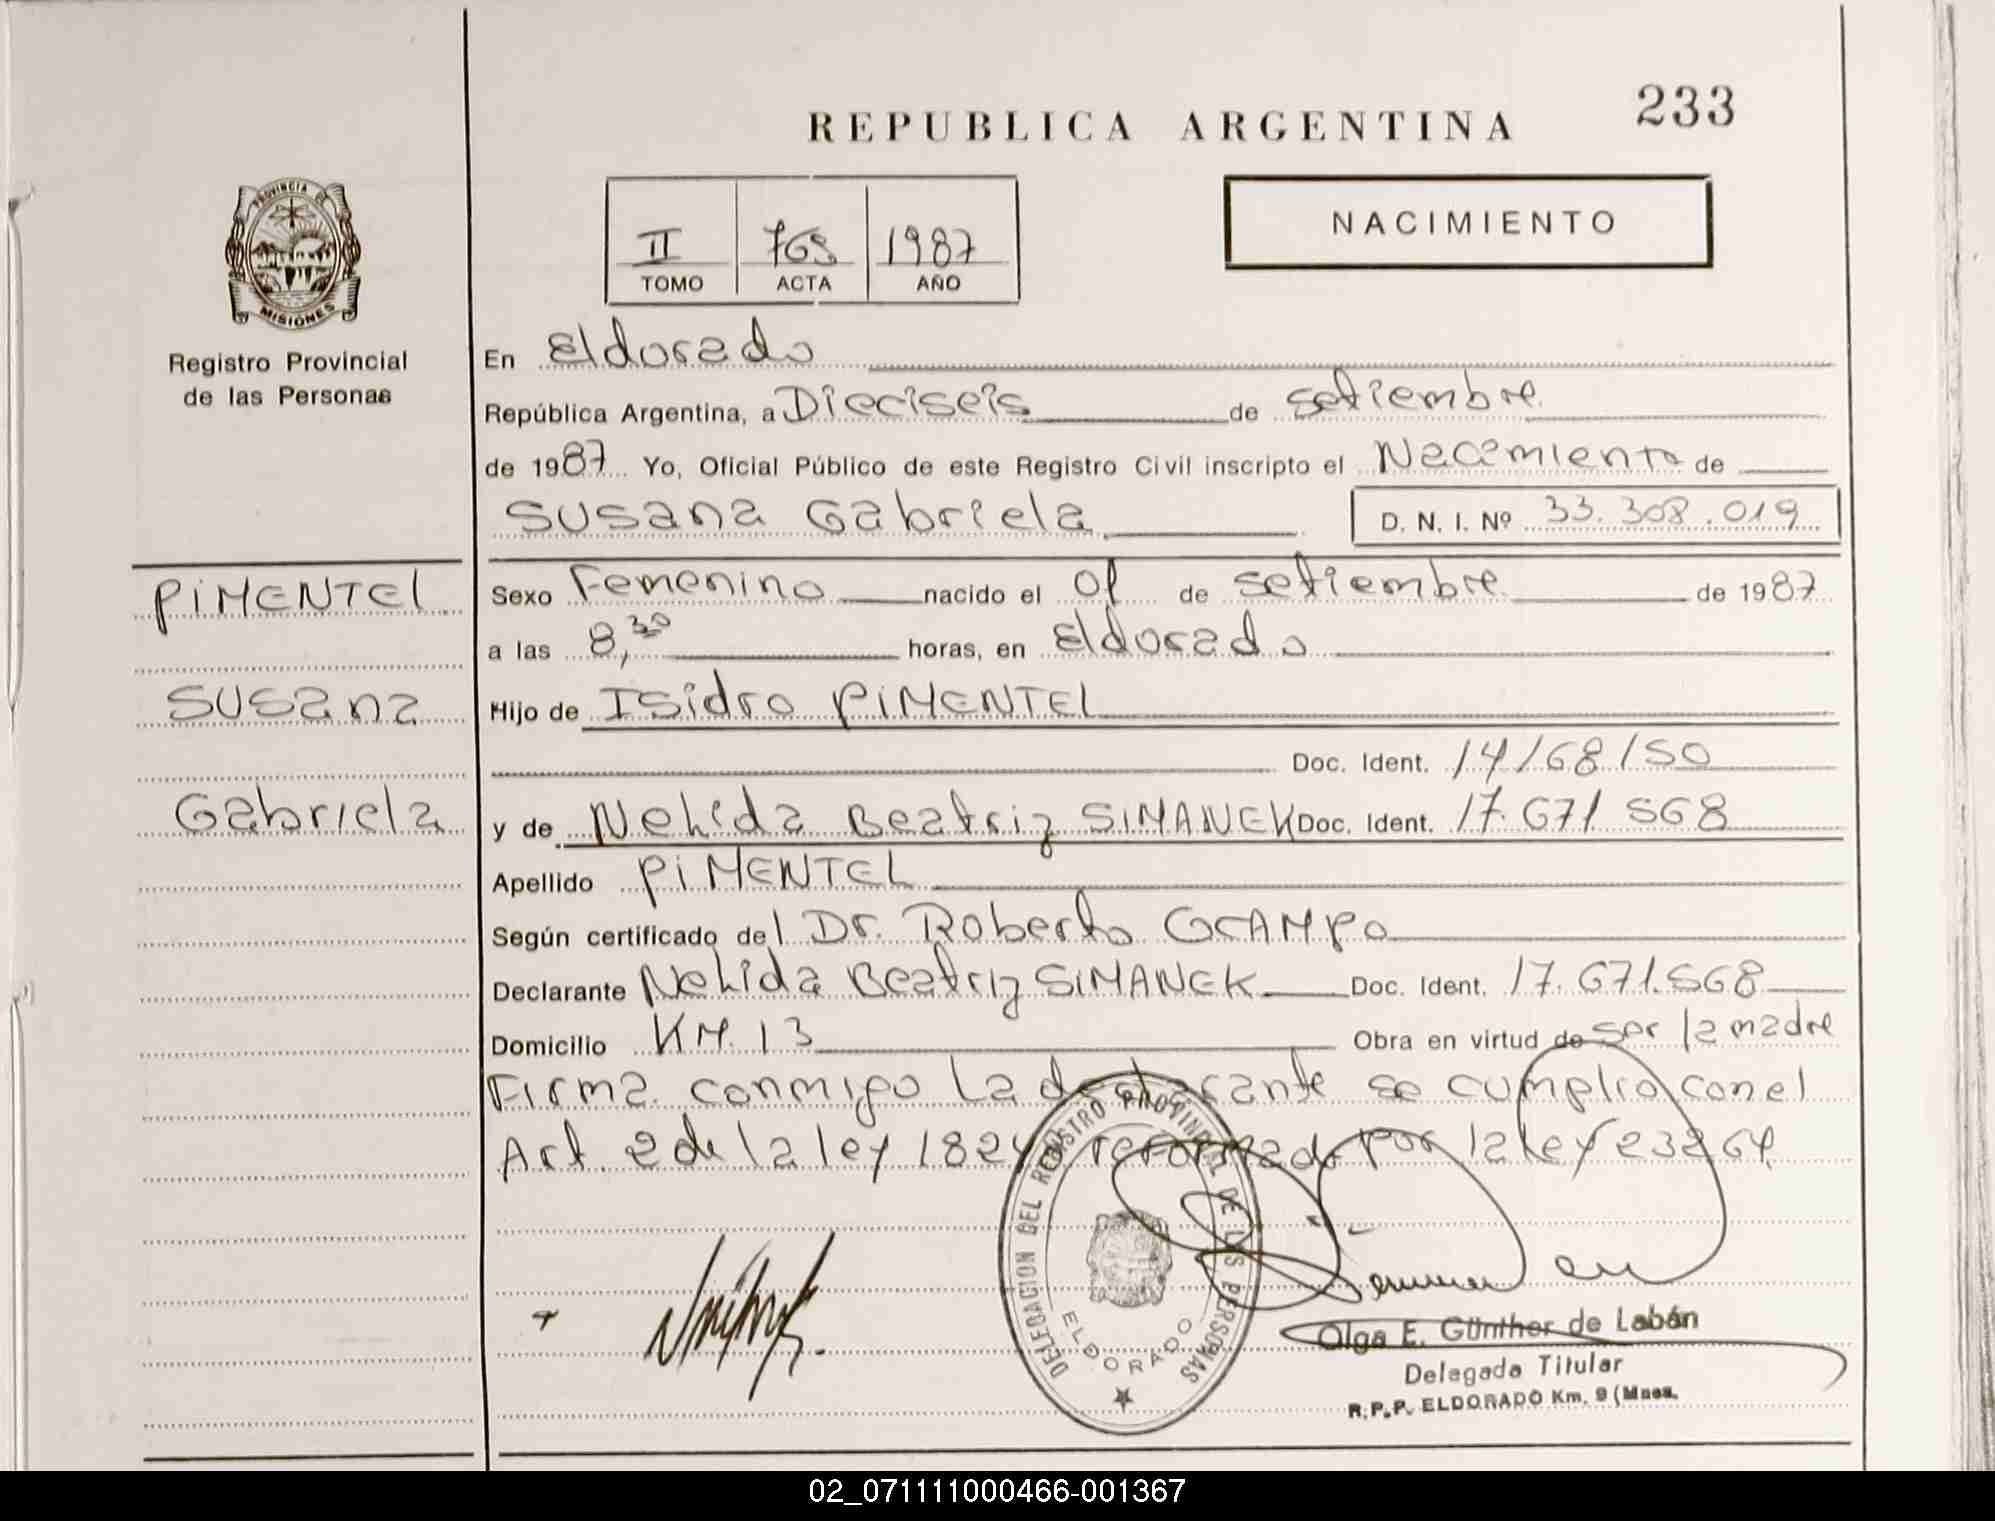 REPUBLICA ARGENTINA
233
PROVINCIA DE
MISIONES
Registro Provincial
de las Personas
II 765 1987
TOMO ACTA AÑO
NACIMIENTO
En Eldorado
República Argentina, a Dieciseis de setiembre
de 1987 Yo, Oficial Público de este Registro Civil inscripto el Nacimiento de
Susana Gabriela D. N. I. Nº 33.308.019
PIMENTEL
Susana
Gabriela
Sexo Femenino nacido el 01 de setiembre de 1987
a las 8,30 horas, en Eldorado
Hijo de Isidro PIMENTEL
Doc. Ident. 14168150
y de Nehida Beatriz SIMANEK Doc. Ident. 17.671.568
Apellido PIMENTEL
Según certificado del Dr. Roberto OCAMPO
Declarante Nehida Beatriz SIMANEK Doc. Ident. 17.671.568
Domicilio KM. 13 Obra en virtud de ser la madre
Firma conmigo la declarante se cumplio con el
Art. 2 de la ley 1824 reformado por la ley 23264
DELEGACION DEL REGISTRO PROVINCIAL DE LAS PERSONAS
ELDORADO
Olga E. Günther de Labán
Delegada Titular
R.P.P. ELDORADO Km. 9 (Mnes.
02_071111000466-001367